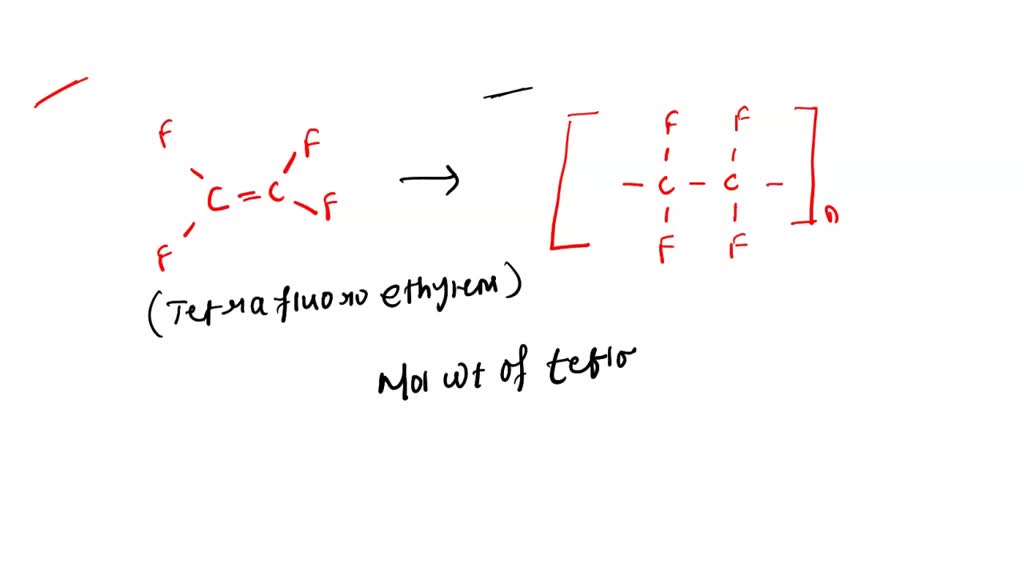 F F F F
C = C F → [ - C - C - ]n
F F F F
(Tetrafluoro ethyrene)
Mol wt of teflo